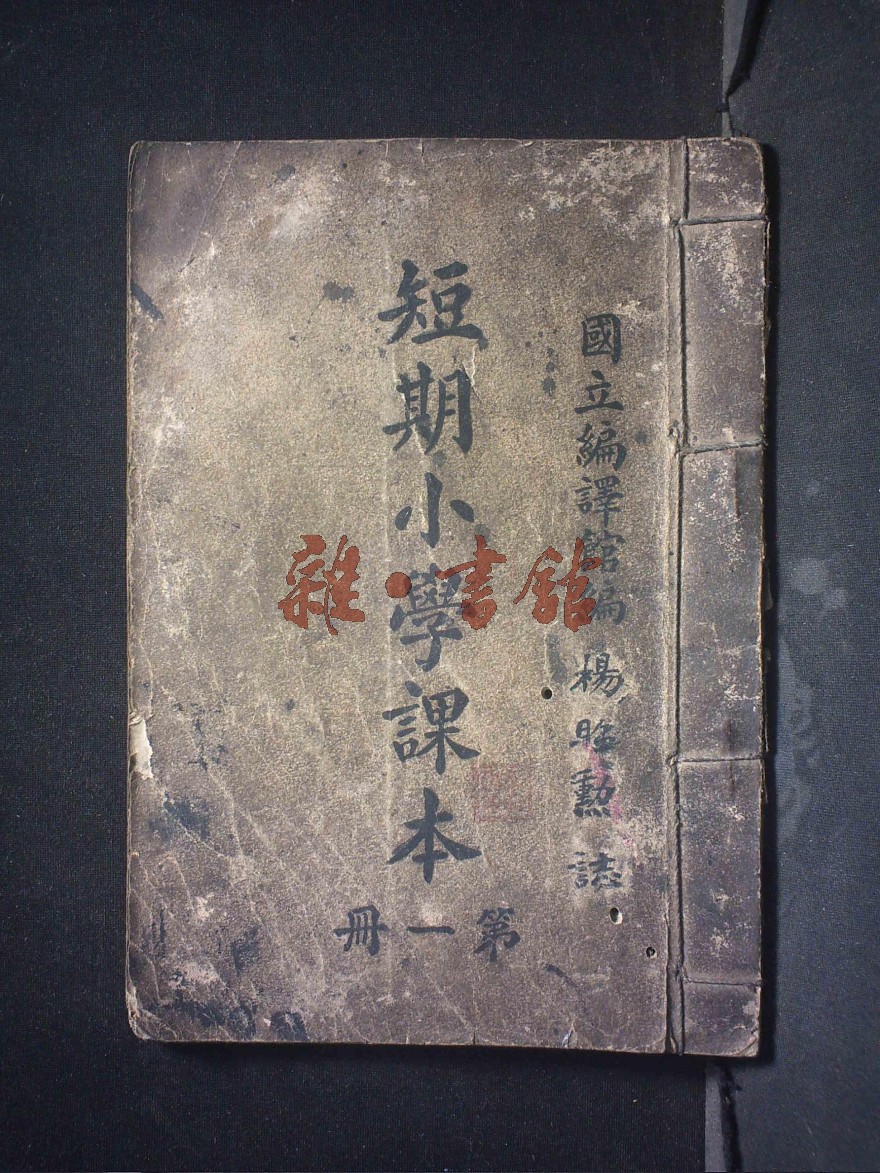 國立編譯館編 楊 勲 誌
短期小學課本
第一冊
雜·書館